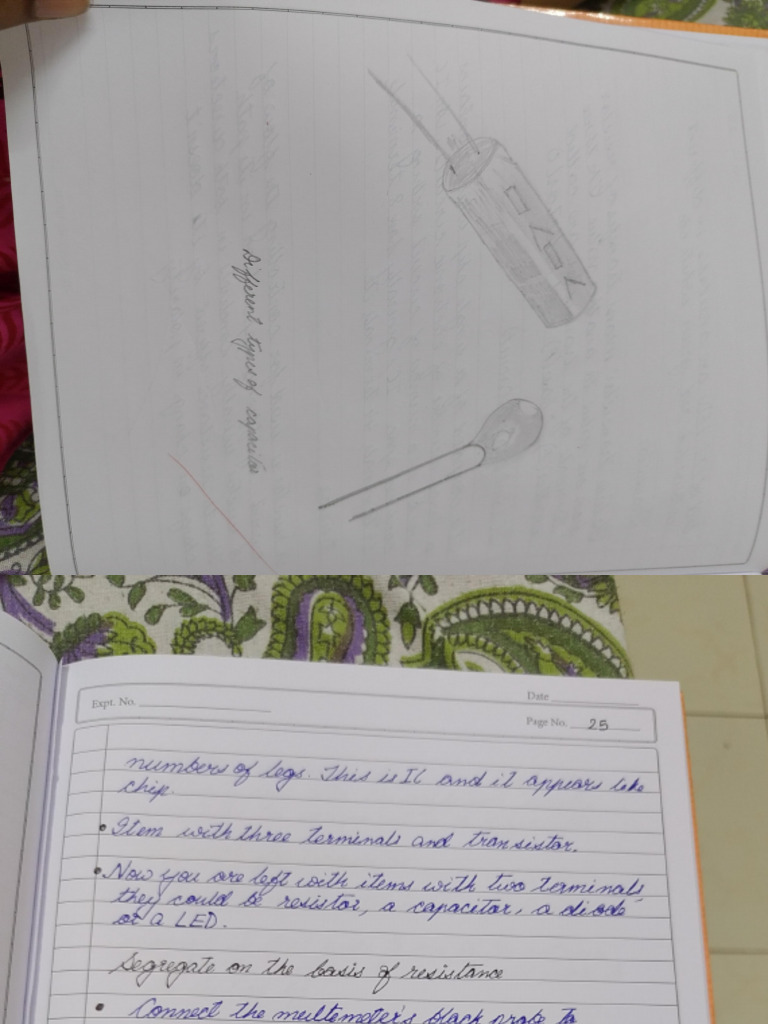 Different types of capacitor
Expt. No.
Date
Page No. 25
numbers of legs. This is IC and it appears like
chip.
• Item with three terminals and transistor.
• Now you are left with items with two terminals
they could be resistor, a capacitor, a diode
or a LED.
Segregate on the basis of resistance
• Connect the multemeter's black probe to